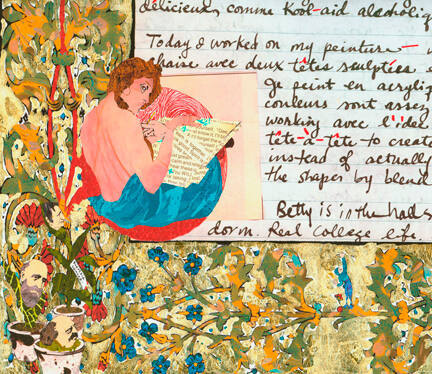 délicieux, comme Kool-aid alcoholiq
Today I worked on my peinture -
chaise avec deux têtes sculptées
Je peint en acryliq
couleurs sont assez
working avec l'idé
tête-à-tête - to create
instead of actually
the shapes by blend
Betty is in the halls
dorm. Real College life.